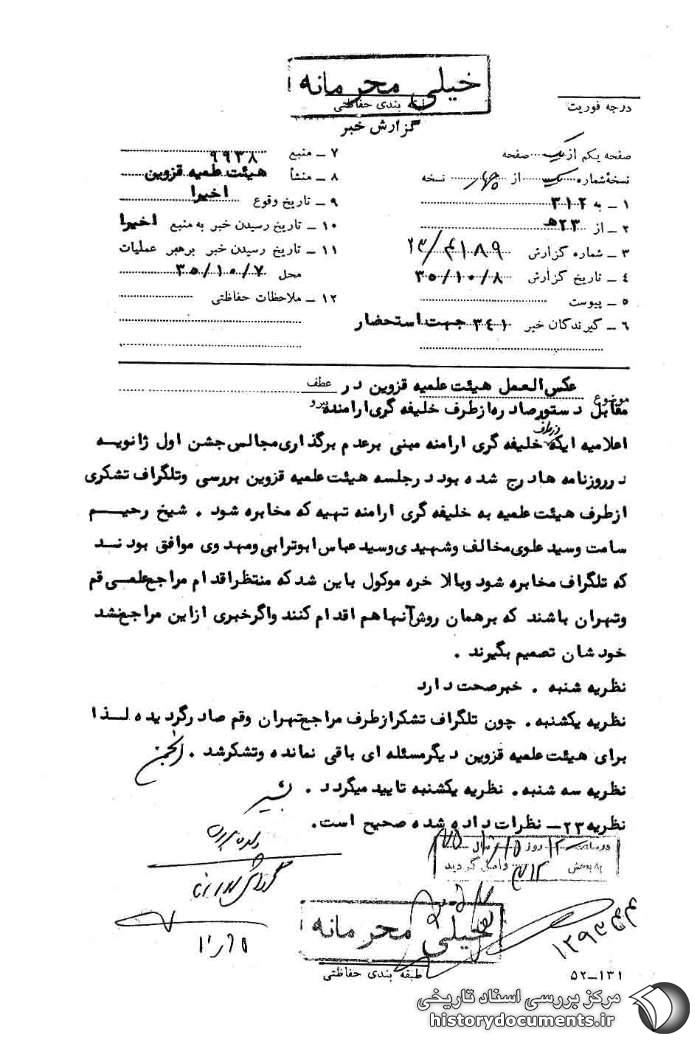 خیلی محرمانه
طبقه بندی حفاظتی
درجه فوریت
گزارش خبر
صفحه یکم از یک صفحه
نسخه شماره یک از چهار نسخه
۱ ـ به ۳۱۲
۲ ـ از ۲۳هـ
۳ ـ شماره گزارش ۲۳/۴۱۸۹
۴ ـ تاریخ گزارش ۳۵/۱۰/۸
۵ ـ پیوست
۶ ـ گیرندگان خبر ۳۴۱ جهت استحضار
۷ ـ منبع ۹۹۳۸
۸ ـ منشأ هیئت علمیه قزوین
۹ ـ تاریخ وقوع اخیرا
۱۰ ـ تاریخ رسیدن خبر به منبع اخیرا
۱۱ ـ تاریخ رسیدن خبر برهبر عملیات
محل ۳۵/۱۰/۷
۱۲ ـ ملاحظات حفاظتی
موضوع عکس العمل هیئت علمیه قزوین در عطف
مقابل دستور صادره از طرف خلیفه گری ارامنه پیرو
اعلامیه ایکه از طرف خلیفه گری ارامنه مبنی بر عدم برگذاری مجالس جشن اول ژانویه
در روزنامه ها درج شده بود در جلسه هیئت علمیه قزوین بررسی وتلگراف تشکری
از طرف هیئت علمیه به خلیفه گری ارامنه تهیه که مخابره شود . شیخ رحیم
سامت وسید علوی مخالف وشهیدی وسید عباس ابوترابی ومهدوی موافق بودند
که تلگراف مخابره شود وبالاخره موکول باین شد که منتظر اقدام مراجع علمی قم
وتهران باشند که برهمان روش آنها هم اقدام کنند واگر خبری از این مراجع نشد
خودشان تصمیم بگیرند .
نظریه شنبه . خبر صحت دارد
نظریه یکشنبه . چون تلگراف تشکر از طرف مراجع تهران وقم صادر گردیده لذا
برای هیئت علمیه قزوین دیگر مسئله ای باقی نمانده وتشکر شد .
نظریه سه شنبه . نظریه یکشنبه تایید میگردد .
نظریه ۲۳ـ نظرات داده شده صحیح است .
روز
به بخش ۳۱۲ واصل گردید
خیلی محرمانه
طبقه بندی حفاظتی
۵۲ـ۱۳۱
مرکز بررسی اسناد تاریخی
historydocuments.ir